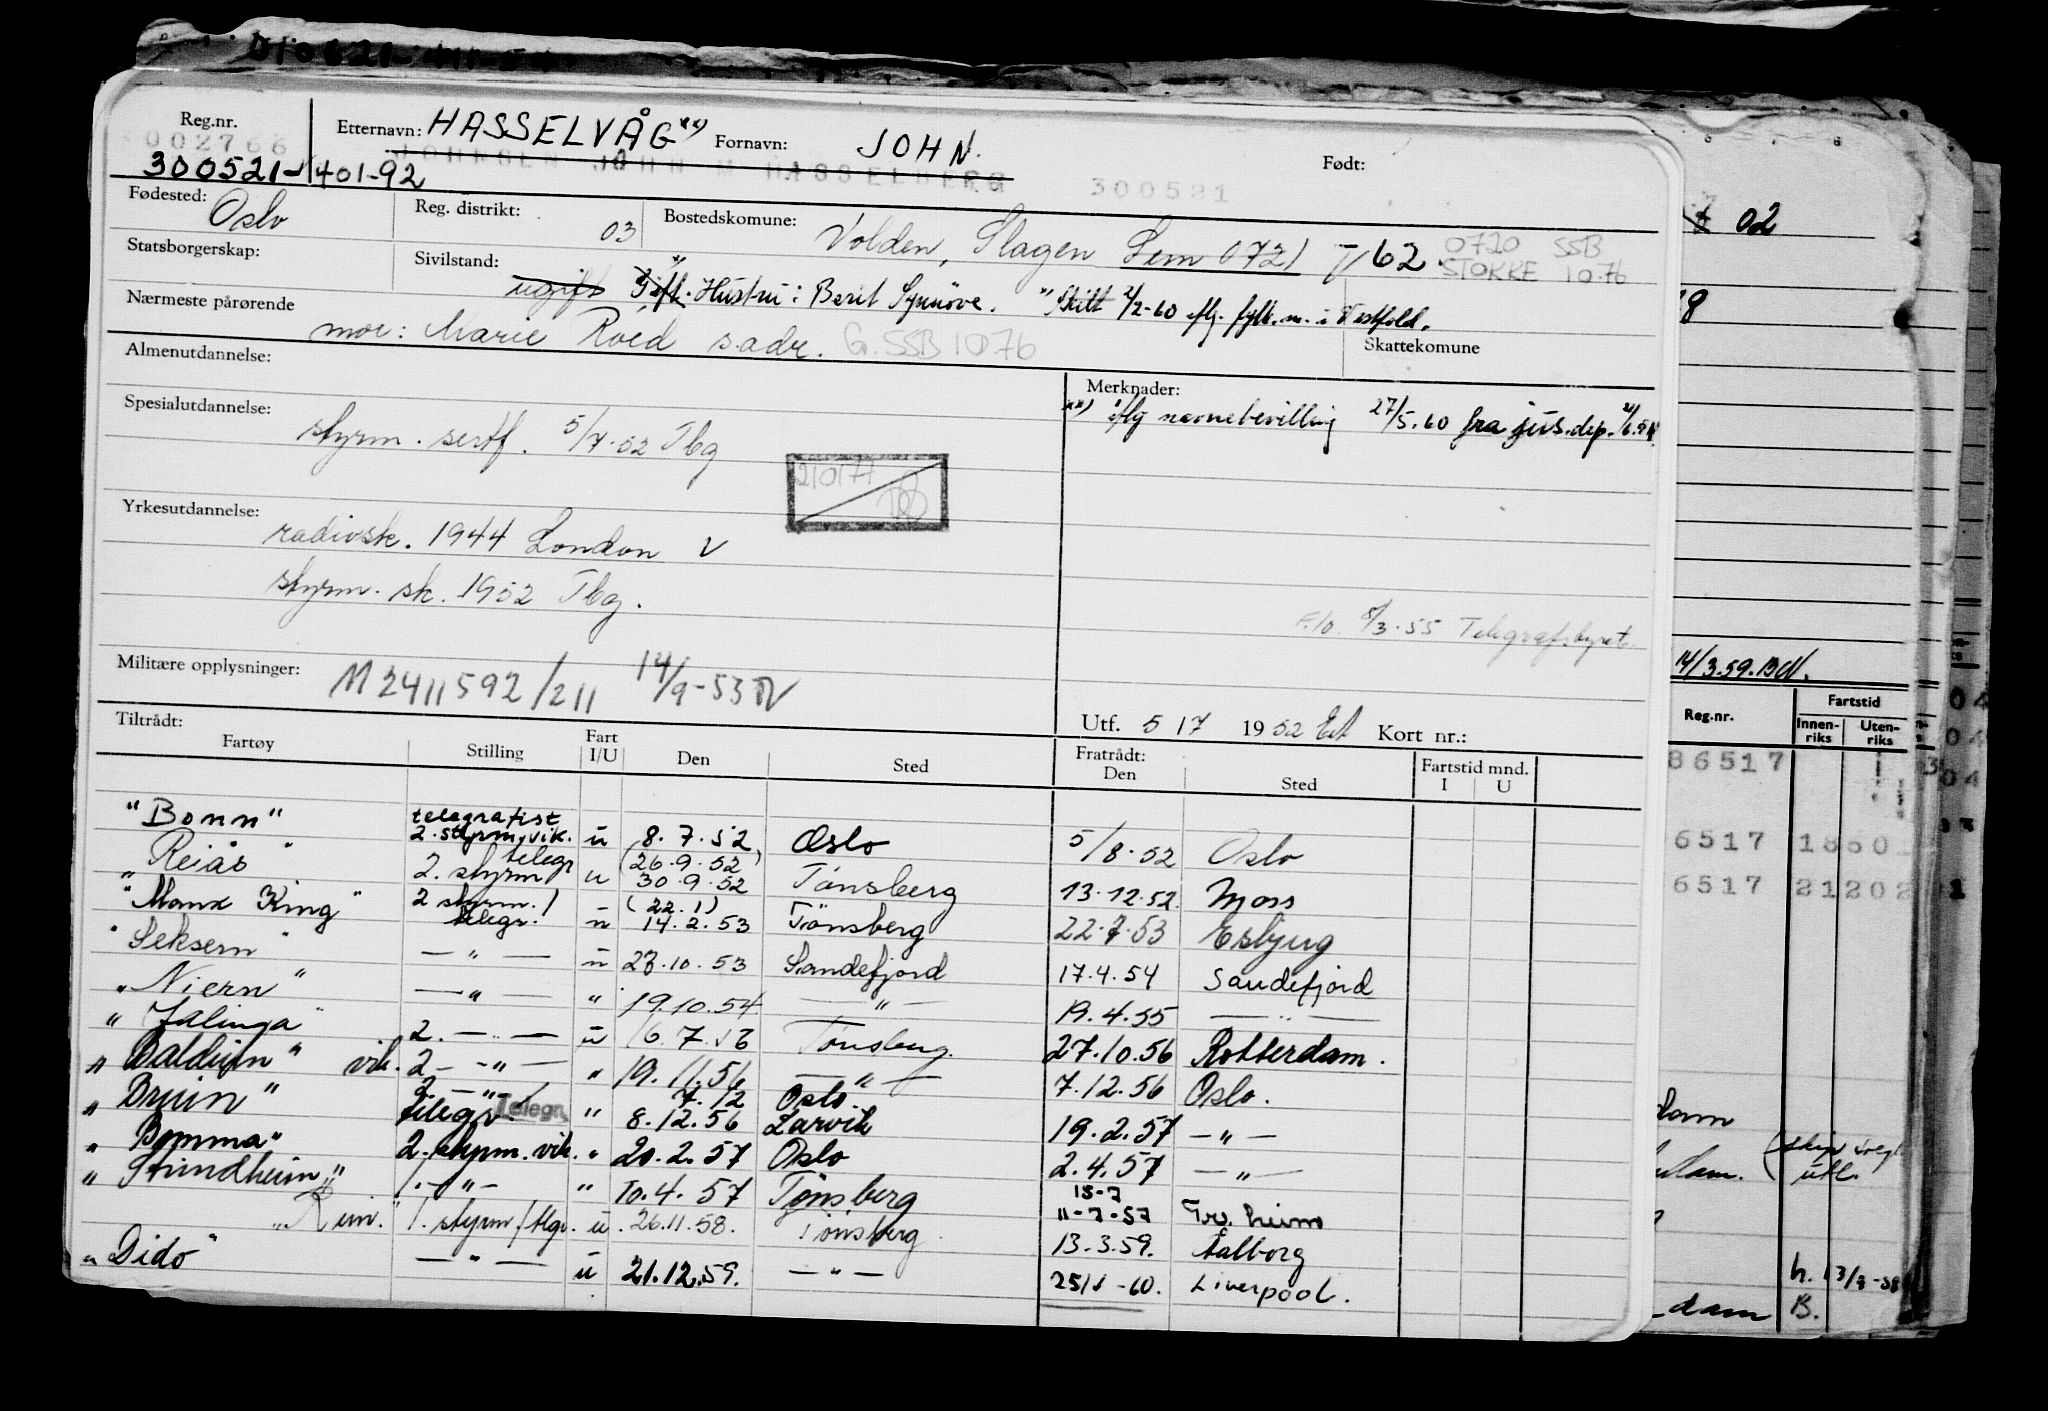 Reg.nr. Etternavn: HASSELVÅG xx) Fornavn: JOHN. Født:
002766 JOHNSEN JOHN M HASSELBERG 300521
300521-401-92
Fødested: Oslo Reg. distrikt: 03 Bostedskomune: Volden, Slagen Sem 0721 62. 0720 SSB
Statsborgerskap: Sivilstand: ugift Gift. Hustru: Berit Synnøve. Skilt 2/2-60 iflg. fylk.m. i Vestfold. STOKKE 10.76
Nærmeste pårørende mor: Marie Roed s.adr. G. SSB 10.76 Skattekomune
Almenutdannelse: Merknader:
xx) iflg navnebevilling 27/5.60 fra jus.dep.
Spesialutdannelse: styrm. sertf. 5/7-52 Tbg
210177
Yrkesutdannelse: radiosk. 1944 London V
styrm. sk. 1952 Tbg.
8/3-55 Telegrafstyret
Militære opplysninger: M2411592/211 14/9-53
Tiltrådt: Utf. 5/7 1952 Kort nr.:
Fartøy Stilling Fart I/U Den Sted Fratrådt: Den Sted Fartstid mnd. I U
"Bonn" telegrafist 2. styrm. vik. u 8.7.52 Oslo 5/8-52 Oslo
"Reiås" 2. styrm telegr u (26.9.52) 30.9.52 Tønsberg 13.12.52 Moss
"Manx King" 2 styrm./ telegr. u (22.1) 14.2.53 Tønsberg 22.7.53 Esbjerg
"Seksern" — " — u 23.10.53 Sandefjord 17.4.54 Sandefjord
"Niern" — " — " 19.10.54 — " — 19.4.55 — " —
"Jalinga" 2. — " — u 16.7.56 Tønsberg 27.10.56 Rotterdam.
"Balduin" vik. 2 — " — " 19.11.56 — " — 7.12.56 Oslo.
"Bruin" 2 — " — / telegr. Telegr. " 7.12 8.12.56 Oslo Larvik 19.2.57 — " —
"Bomma" 2. styrm. vik. " 20.2.57 Oslo 2.4.57 — " —
"Strindheim" 1. — " — " 10.4.57 Tønsberg 18-7 11-7-57 Tr.heim
"Rim." 1. styrm/tlgr. u 26.11.58. Tønsberg 13.3.59. Aalborg
"Dido" — " — u 21.12.59. — " — 25/1-60. Liverpool.
02
14/3.59.
Reg.nr. Fartstid
Innen-riks Uten-riks
86517
6517 18601
6517 21202
dam
utl.
dam B.